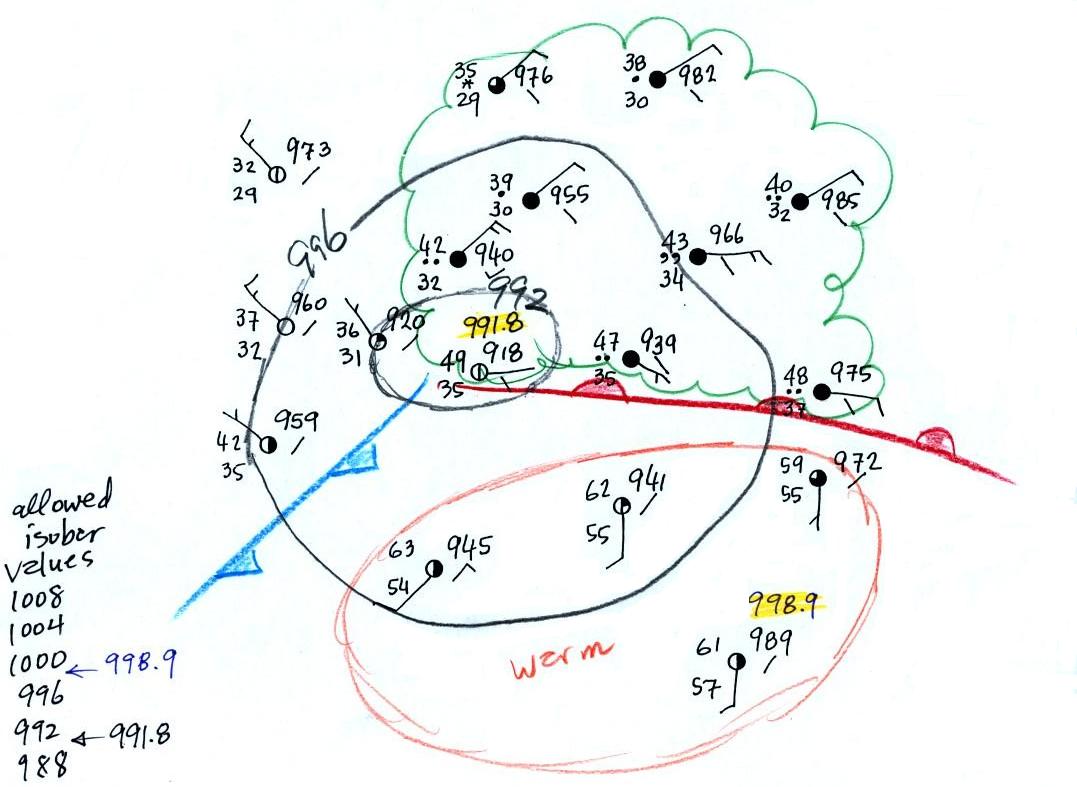 35 976
*
29
38 982
30
32 973
29
39 955
30
40 985
32
996
42 940
32
43 966
34
992
37 960
32
36 920
31
991.8
49 918
35
47 939
35
48 975
37
42 959
35
59 972
55
62 941
55
63 945
54
998.9
61 989
57
warm
allowed
isobar
values
1008
1004
1000 ← 998.9
996
992 ← 991.8
988